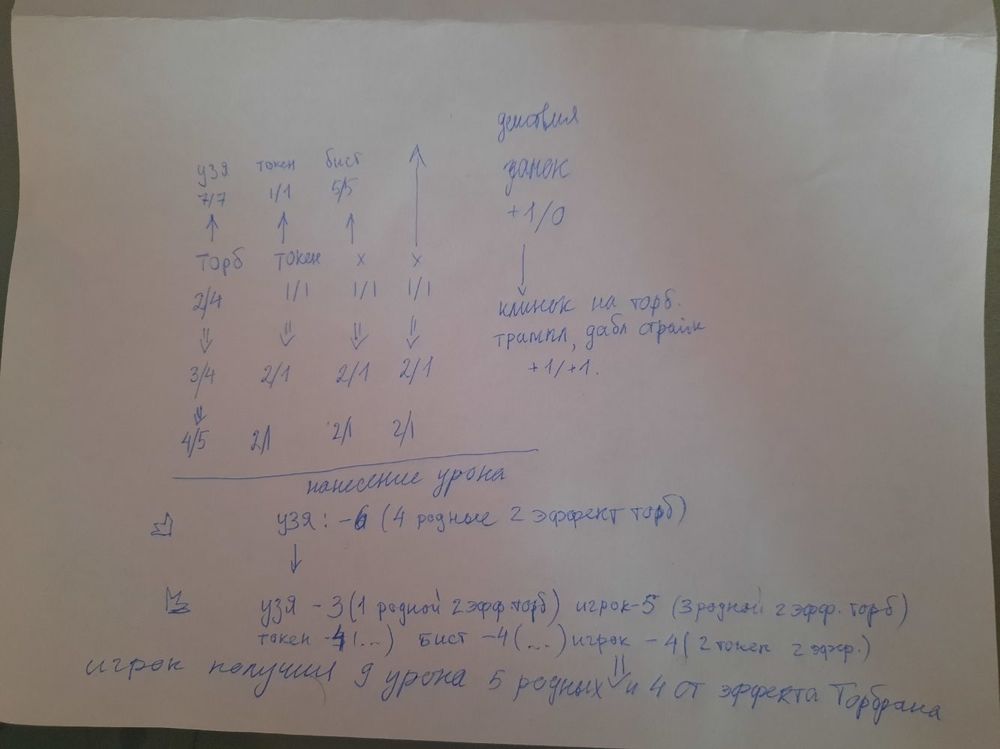 действия
узя токен бист
7/7 1/1 5/5
данек
+1/0
торб токен х х
2/4 1/1 1/1 1/1
клинок на торб.
трампл, дабл страйк
+1/+1.
3/4 2/1 2/1 2/1
4/5 2/1 2/1 2/1
нанесение урона
узя: -6 (4 родные 2 эффект торб)
узя -3 (1 родной 2 эфф торб) игрок-5 (3 родной 2 эфф. торб)
токен -4 (...) бист -4 (...) игрок -4 (2 токен 2 эфф.)
игрок получил 9 урона 5 родных и 4 от эффекта Торбрана